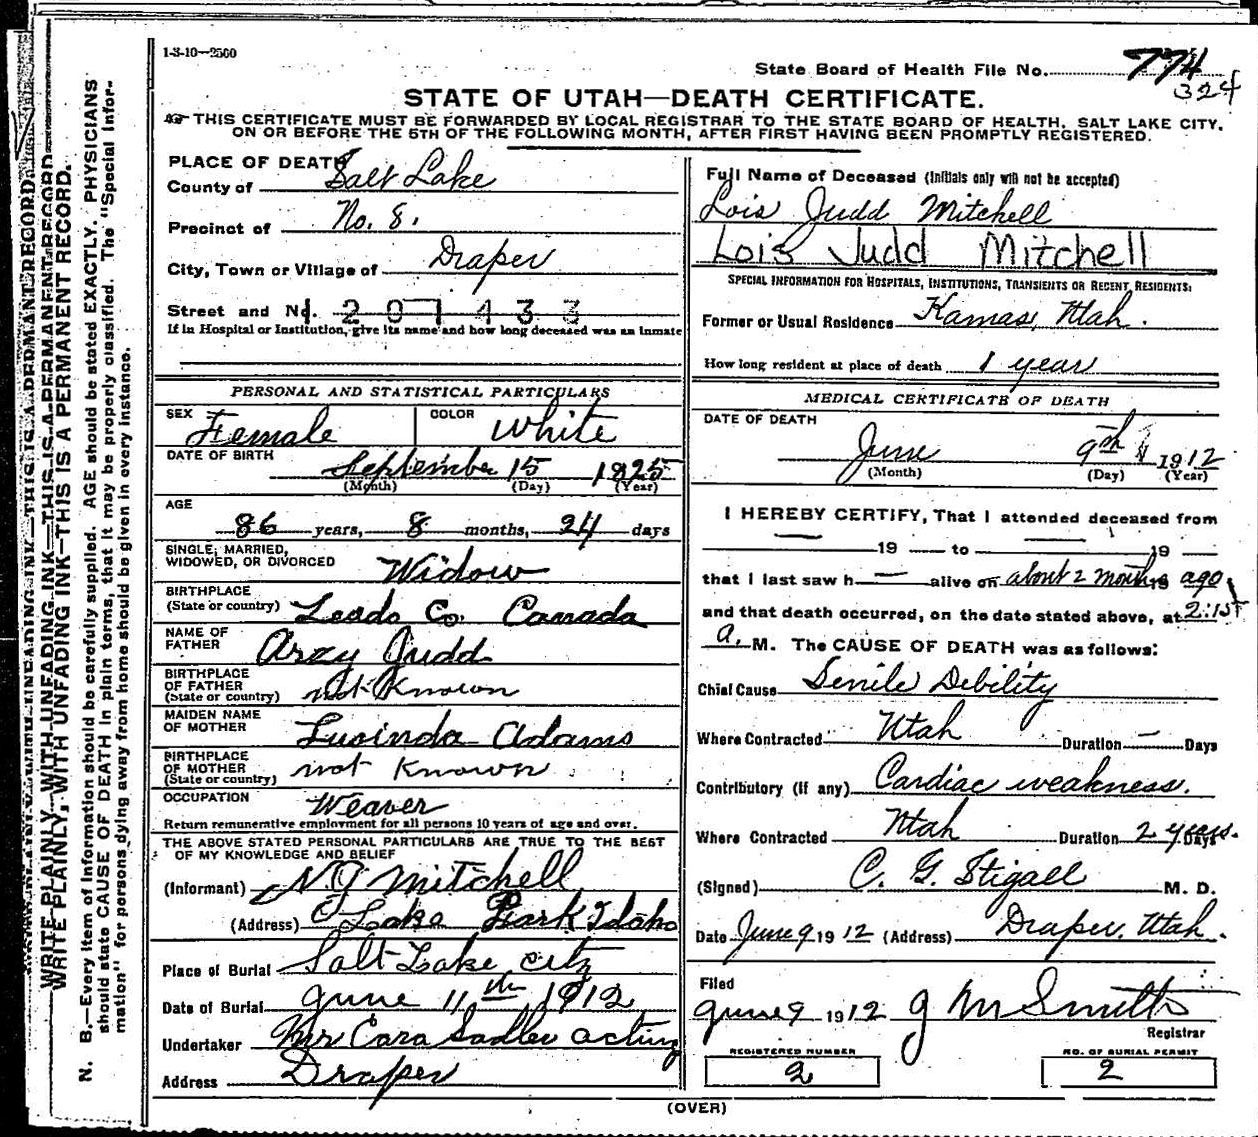 1-3-10—2500
State Board of Health File No. 774
324
STATE OF UTAH—DEATH CERTIFICATE.
THIS CERTIFICATE MUST BE FORWARDED BY LOCAL REGISTRAR TO THE STATE BOARD OF HEALTH, SALT LAKE CITY,
ON OR BEFORE THE 5TH OF THE FOLLOWING MONTH, AFTER FIRST HAVING BEEN PROMPTLY REGISTERED.
WRITE PLAINLY, WITH UNFADING INK—THIS IS A PERMANENT RECORD.
N. B.—Every item of information should be carefully supplied. AGE should be stated EXACTLY. PHYSICIANS
should state CAUSE OF DEATH in plain terms, that it may be properly classified. The "Special Infor-
mation" for persons dying away from home should be given in every instance.
PLACE OF DEATH
County of Salt Lake
Precinct of No. 8.
City, Town or Village of Draper
Street and No. 201433
If in Hospital or Institution, give its name and how long deceased was an inmate
PERSONAL AND STATISTICAL PARTICULARS
SEX Female COLOR White
DATE OF BIRTH September 15 1825
(Month) (Day) (Year)
AGE
86 years, 8 months, 24 days
SINGLE, MARRIED,
WIDOWED, OR DIVORCED Widow
BIRTHPLACE
(State or country) Leads Co. Canada
NAME OF
FATHER Arzy Judd
BIRTHPLACE
OF FATHER
(State or country) not Known
MAIDEN NAME
OF MOTHER Lucinda Adams
BIRTHPLACE
OF MOTHER
(State or country) not Known
OCCUPATION Weaver
Return remunerative employment for all persons 10 years of age and over.
THE ABOVE STATED PERSONAL PARTICULARS ARE TRUE TO THE BEST
OF MY KNOWLEDGE AND BELIEF
(Informant) N G Mitchell
(Address) Lake Park Idaho
Place of Burial Salt Lake City
Date of Burial June 11th 1912
Undertaker Mr Cara Sadler acting
Address Draper
Full Name of Deceased (Initials only will not be accepted)
Lois Judd Mitchell
Lois Judd Mitchell
SPECIAL INFORMATION FOR HOSPITALS, INSTITUTIONS, TRANSIENTS OR RECENT RESIDENTS:
Former or Usual Residence Kamas, Utah.
How long resident at place of death 1 year
MEDICAL CERTIFICATE OF DEATH
DATE OF DEATH
June 9th 1912
(Month) (Day) (Year)
I HEREBY CERTIFY, That I attended deceased from
— 19 — to — 19 —
that I last saw h — alive on about 2 months 19 ago,
and that death occurred, on the date stated above, at 2:15
a. M. The CAUSE OF DEATH was as follows:
Chief Cause Senile Debility
Where Contracted Utah Duration — Days
Contributory (if any) Cardiac weakness.
Where Contracted Utah Duration 2 years. Days
(Signed) C. G. Stigall M. D.
Date June 9 1912 (Address) Draper, Utah.
Filed
June 9 1912 J M Smith
Registrar
REGISTERED NUMBER
2
NO. OF BURIAL PERMIT
2
(OVER)